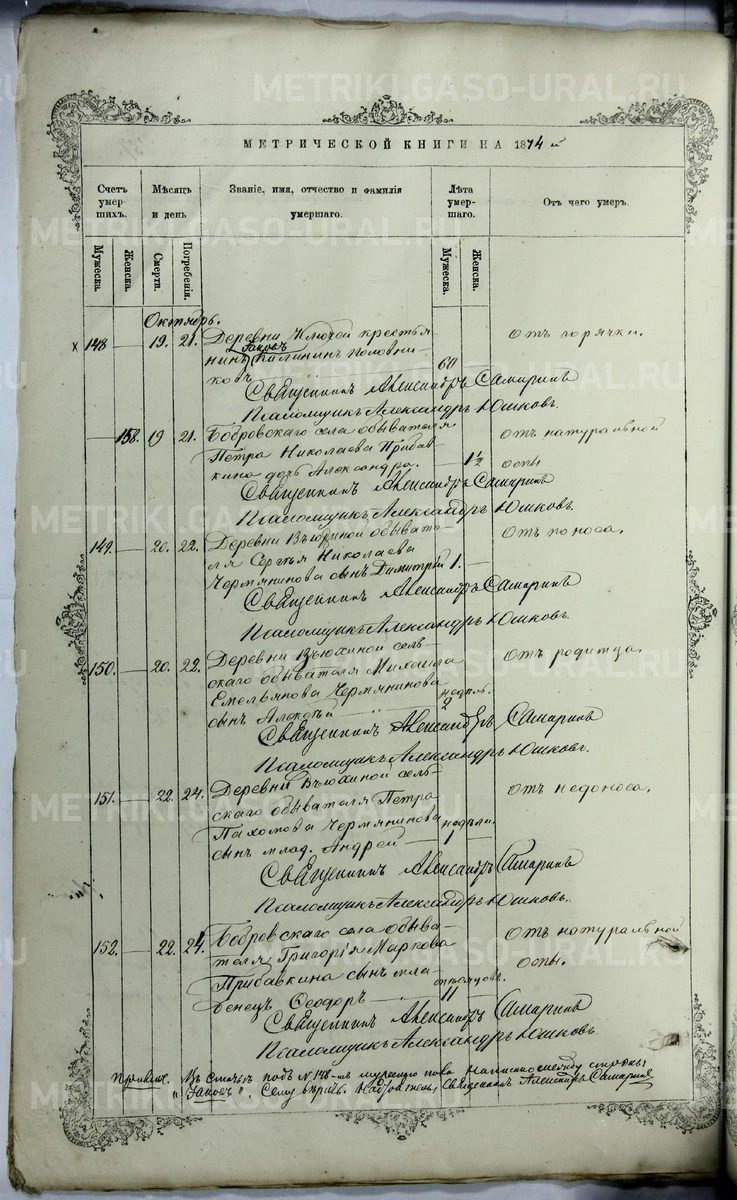 МЕТРИЧЕСКОЙ КНИГИ НА 1874 й
Счетъ умер-шихъ.
Мѣсяцъ и день
Званіе, имя, отчество и фамилія умершаго.
Лѣта умер-шаго.
Отъ чего умеръ.
Мужеска.
Женска.
Смерти.
Погребенія.
Мужеска.
Женска.
Октябрь.
х 148 — 19. 21. Деревни Ключей крестья-
Іаковъ
нинъ Калининъ Половни-
ковъ 60
отъ горячки.
Священникъ Александръ Самаринъ
Псаломщикъ Александръ Юшковъ.
— 158. 19 21. Бобровскаго села обывателя
Петра Николаева Прибав-
кина дочь Александра. — 1½
отъ натуральной
оспы
Священникъ Александръ Самаринъ
Псаломщикъ Александръ Юшковъ.
149. — 20. 22. Деревни Вьюхиной обывате-
ля Сергѣя Николаева
Чермянинова сынъ Димитрій 1. —
отъ поноса.
Священникъ Александръ Самаринъ
Псаломщикъ Александръ Юшковъ.
150. — 20. 22. Деревни Вьюхиной сель-
скаго обывателя Михаила
Емельянова Чермянинова
сынъ Алексѣй — недѣль. 2
отъ родимца.
Священникъ Александръ Самаринъ
Псаломщикъ Александръ Юшковъ.
151. — 22. 24. Деревни Вьюхиной сель-
скаго обывателя Петра
Пахомова Чермянинова
сынъ млад. Андрей — недѣли. 1.
отъ недоноса.
Священникъ Александръ Самаринъ
Псаломщикъ Александръ Юшковъ.
152. — 22. 24. Бобровскаго села обыва-
теля Григорія Маркова
Прибавкина сынъ мла-
денецъ Ѳеодоръ — мѣсяцовъ. 11 —
отъ натуральной
оспы.
Священникъ Александръ Самаринъ
Псаломщикъ Александръ Юшковъ
Примѣч. Въ статьѣ подъ № 148-мъ мужеска пола написано между строкъ
"Іаковъ". Сему вѣрить. Священникъ Александръ Самаринъ
METRIKI.GASO-URAL.RU